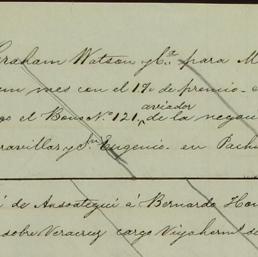 Graham Watson y Cª. para M
un mes con el 1% de premio
go el Bono Nº 121, aviador de la negoc
ravillas y Sn. Eugenio en Pachu
de Ansoategui á Bernardo
sobre Veracruz cargo